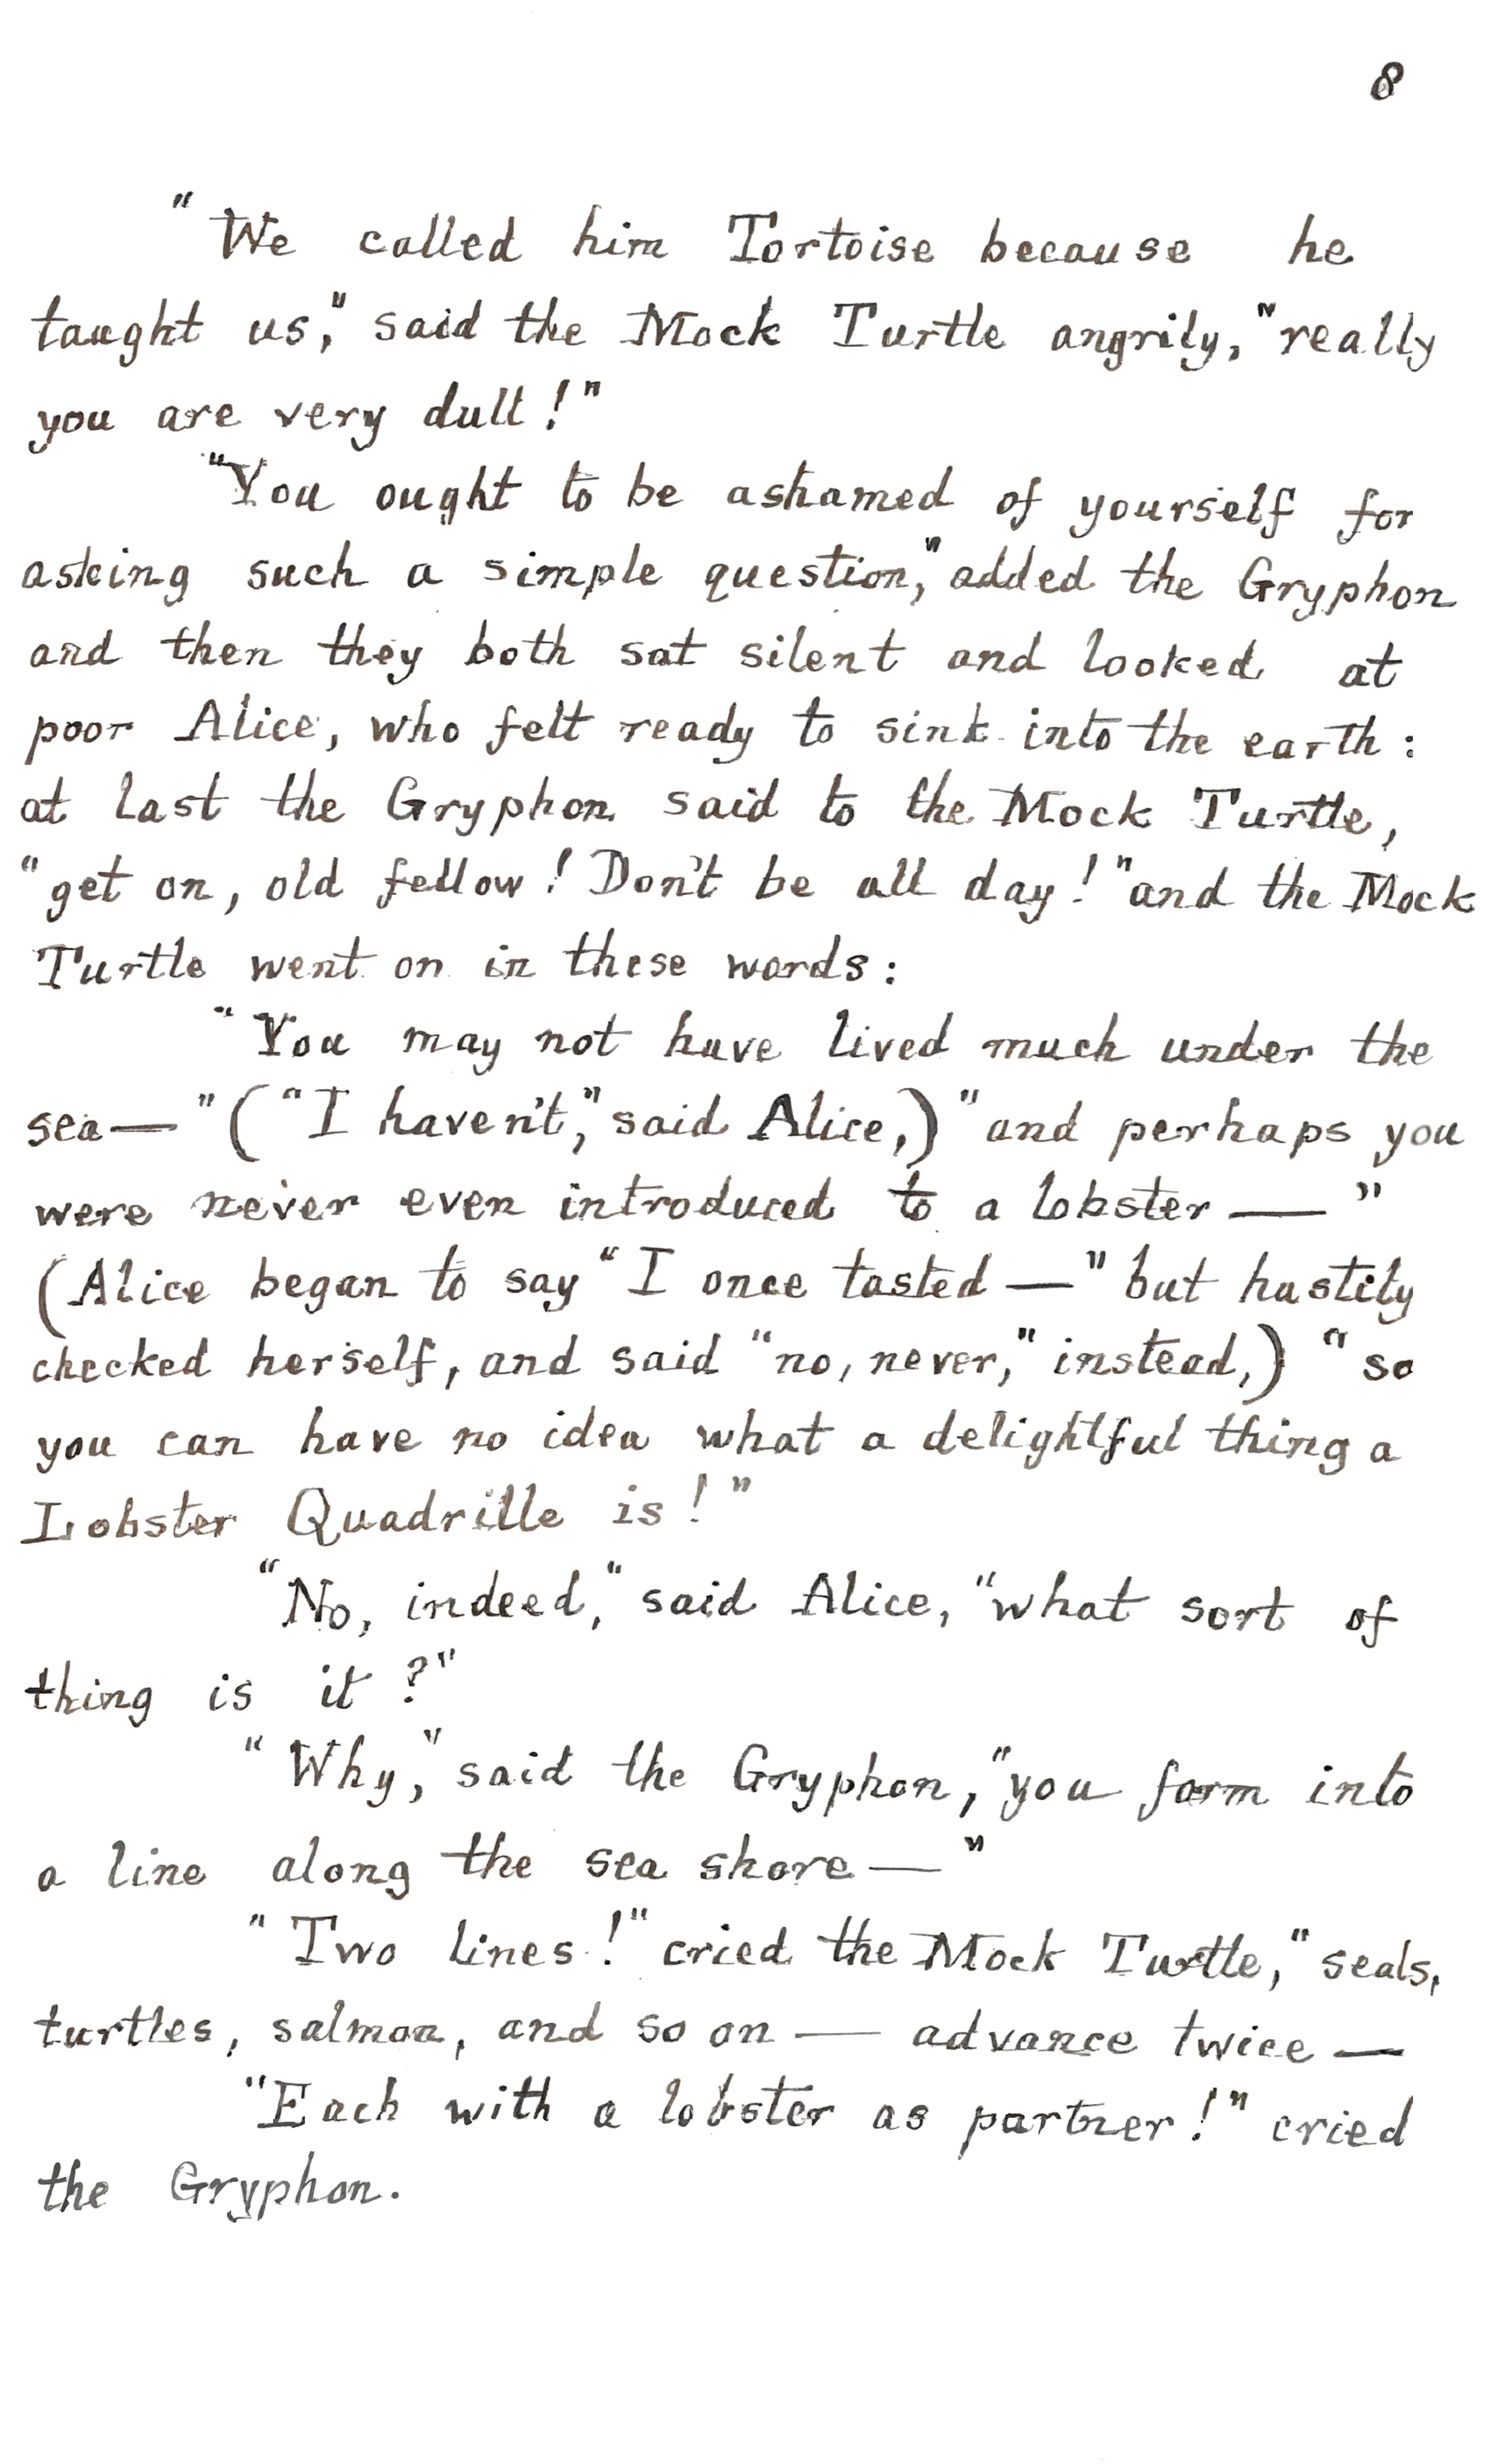 8
"We called him Tortoise because he
taught us," said the Mock Turtle angrily, "really
you are very dull!"
"You ought to be ashamed of yourself for
asking such a simple question," added the Gryphon
and then they both sat silent and looked at
poor Alice, who felt ready to sink into the earth:
at last the Gryphon said to the Mock Turtle,
"get on, old fellow! Don't be all day!" and the Mock
Turtle went on in these words:
"You may not have lived much under the
sea—" ("I haven't," said Alice,) "and perhaps you
were never even introduced to a lobster—"
(Alice began to say "I once tasted—" but hastily
checked herself, and said "no, never," instead,) "so
you can have no idea what a delightful thing a
Lobster Quadrille is!"
"No, indeed," said Alice, "what sort of
thing is it?"
"Why," said the Gryphon, "you form into
a line along the sea shore—"
"Two lines!" cried the Mock Turtle, "seals,
turtles, salmon, and so on — advance twice —
"Each with a lobster as partner!" cried
the Gryphon.